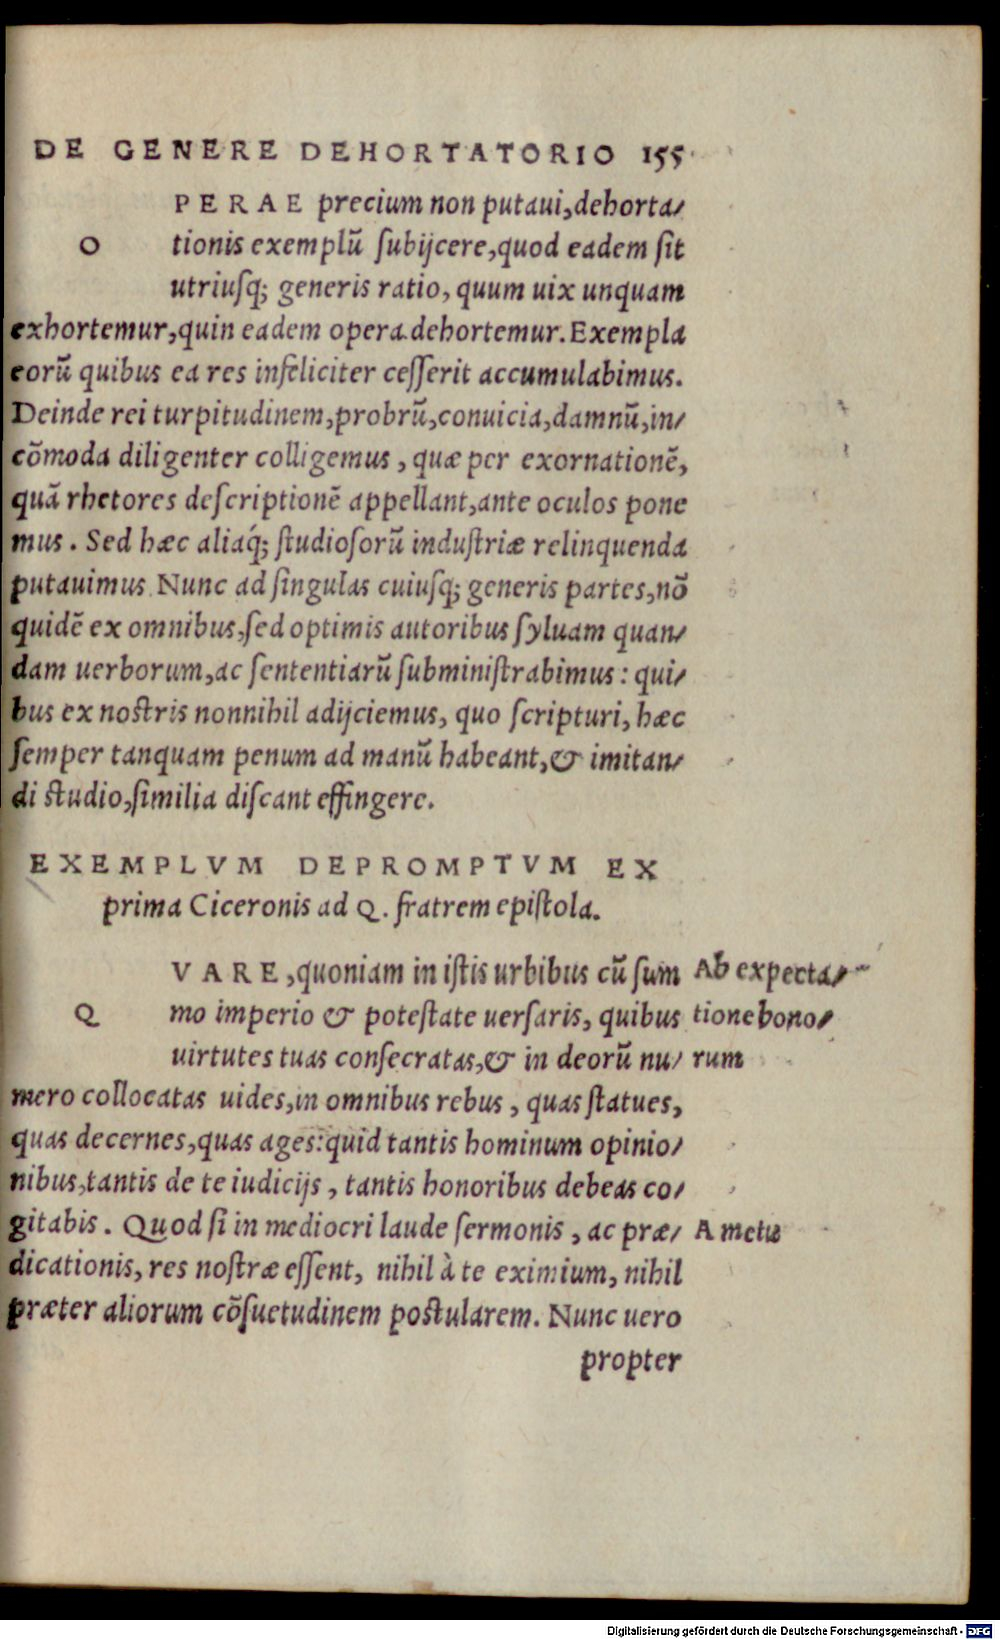 DE GENERE DEHORTATORIO 155
O PERAE precium non putaui,dehorta/
tionis exemplū ſubijcere,quod eadem ſit
utriuſq; generis ratio, quum uix unquam
exhortemur,quin eadem opera dehortemur. Exempla
eorū quibus ea res infeliciter ceſſerit accumulabimus.
Deinde rei turpitudinem,probrū,conuicia,damnū,in/
cōmoda diligenter colligemus, quæ per exornationē,
quā rhetores deſcriptionē appellant,ante oculos pone
mus. Sed hæc aliaq́; ſtudioſorū induſtriæ relinquenda
putauimus. Nunc ad ſingulas cuiuſq; generis partes,nō
quidē ex omnibus,ſed optimis autoribus ſyluam quan/
dam uerborum,ac ſententiarū ſubminiſtrabimus: qui/
bus ex noſtris nonnihil adijciemus, quo ſcripturi, hæc
ſemper tanquam penum ad manū habeant,& imitan/
di ſtudio,ſimilia diſcant effingere.
EXEMPLVM DEPROMPTVM EX
prima Ciceronis ad Q. fratrem epiſtola.
Q VARE,quoniam in iſtis urbibus cū ſum
mo imperio & poteſtate uerſaris, quibus
uirtutes tuas conſecratas,& in deorū nu/
mero collocatas uides,in omnibus rebus, quas ſtatues,
quas decernes,quas ages:quid tantis hominum opinio/
nibus,tantis de te iudicijs, tantis honoribus debeas co/
gitabis. Quod ſi in mediocri laude ſermonis, ac præ/
dicationis, res noſtræ eſſent, nihil à te eximium, nihil
præter aliorum cōſuetudinem poſtularem. Nunc uero
propter
Ab expecta/
tione bono/
rum
A metu
Digitalisierung gefördert durch die Deutsche Forschungsgemeinschaft - DFG